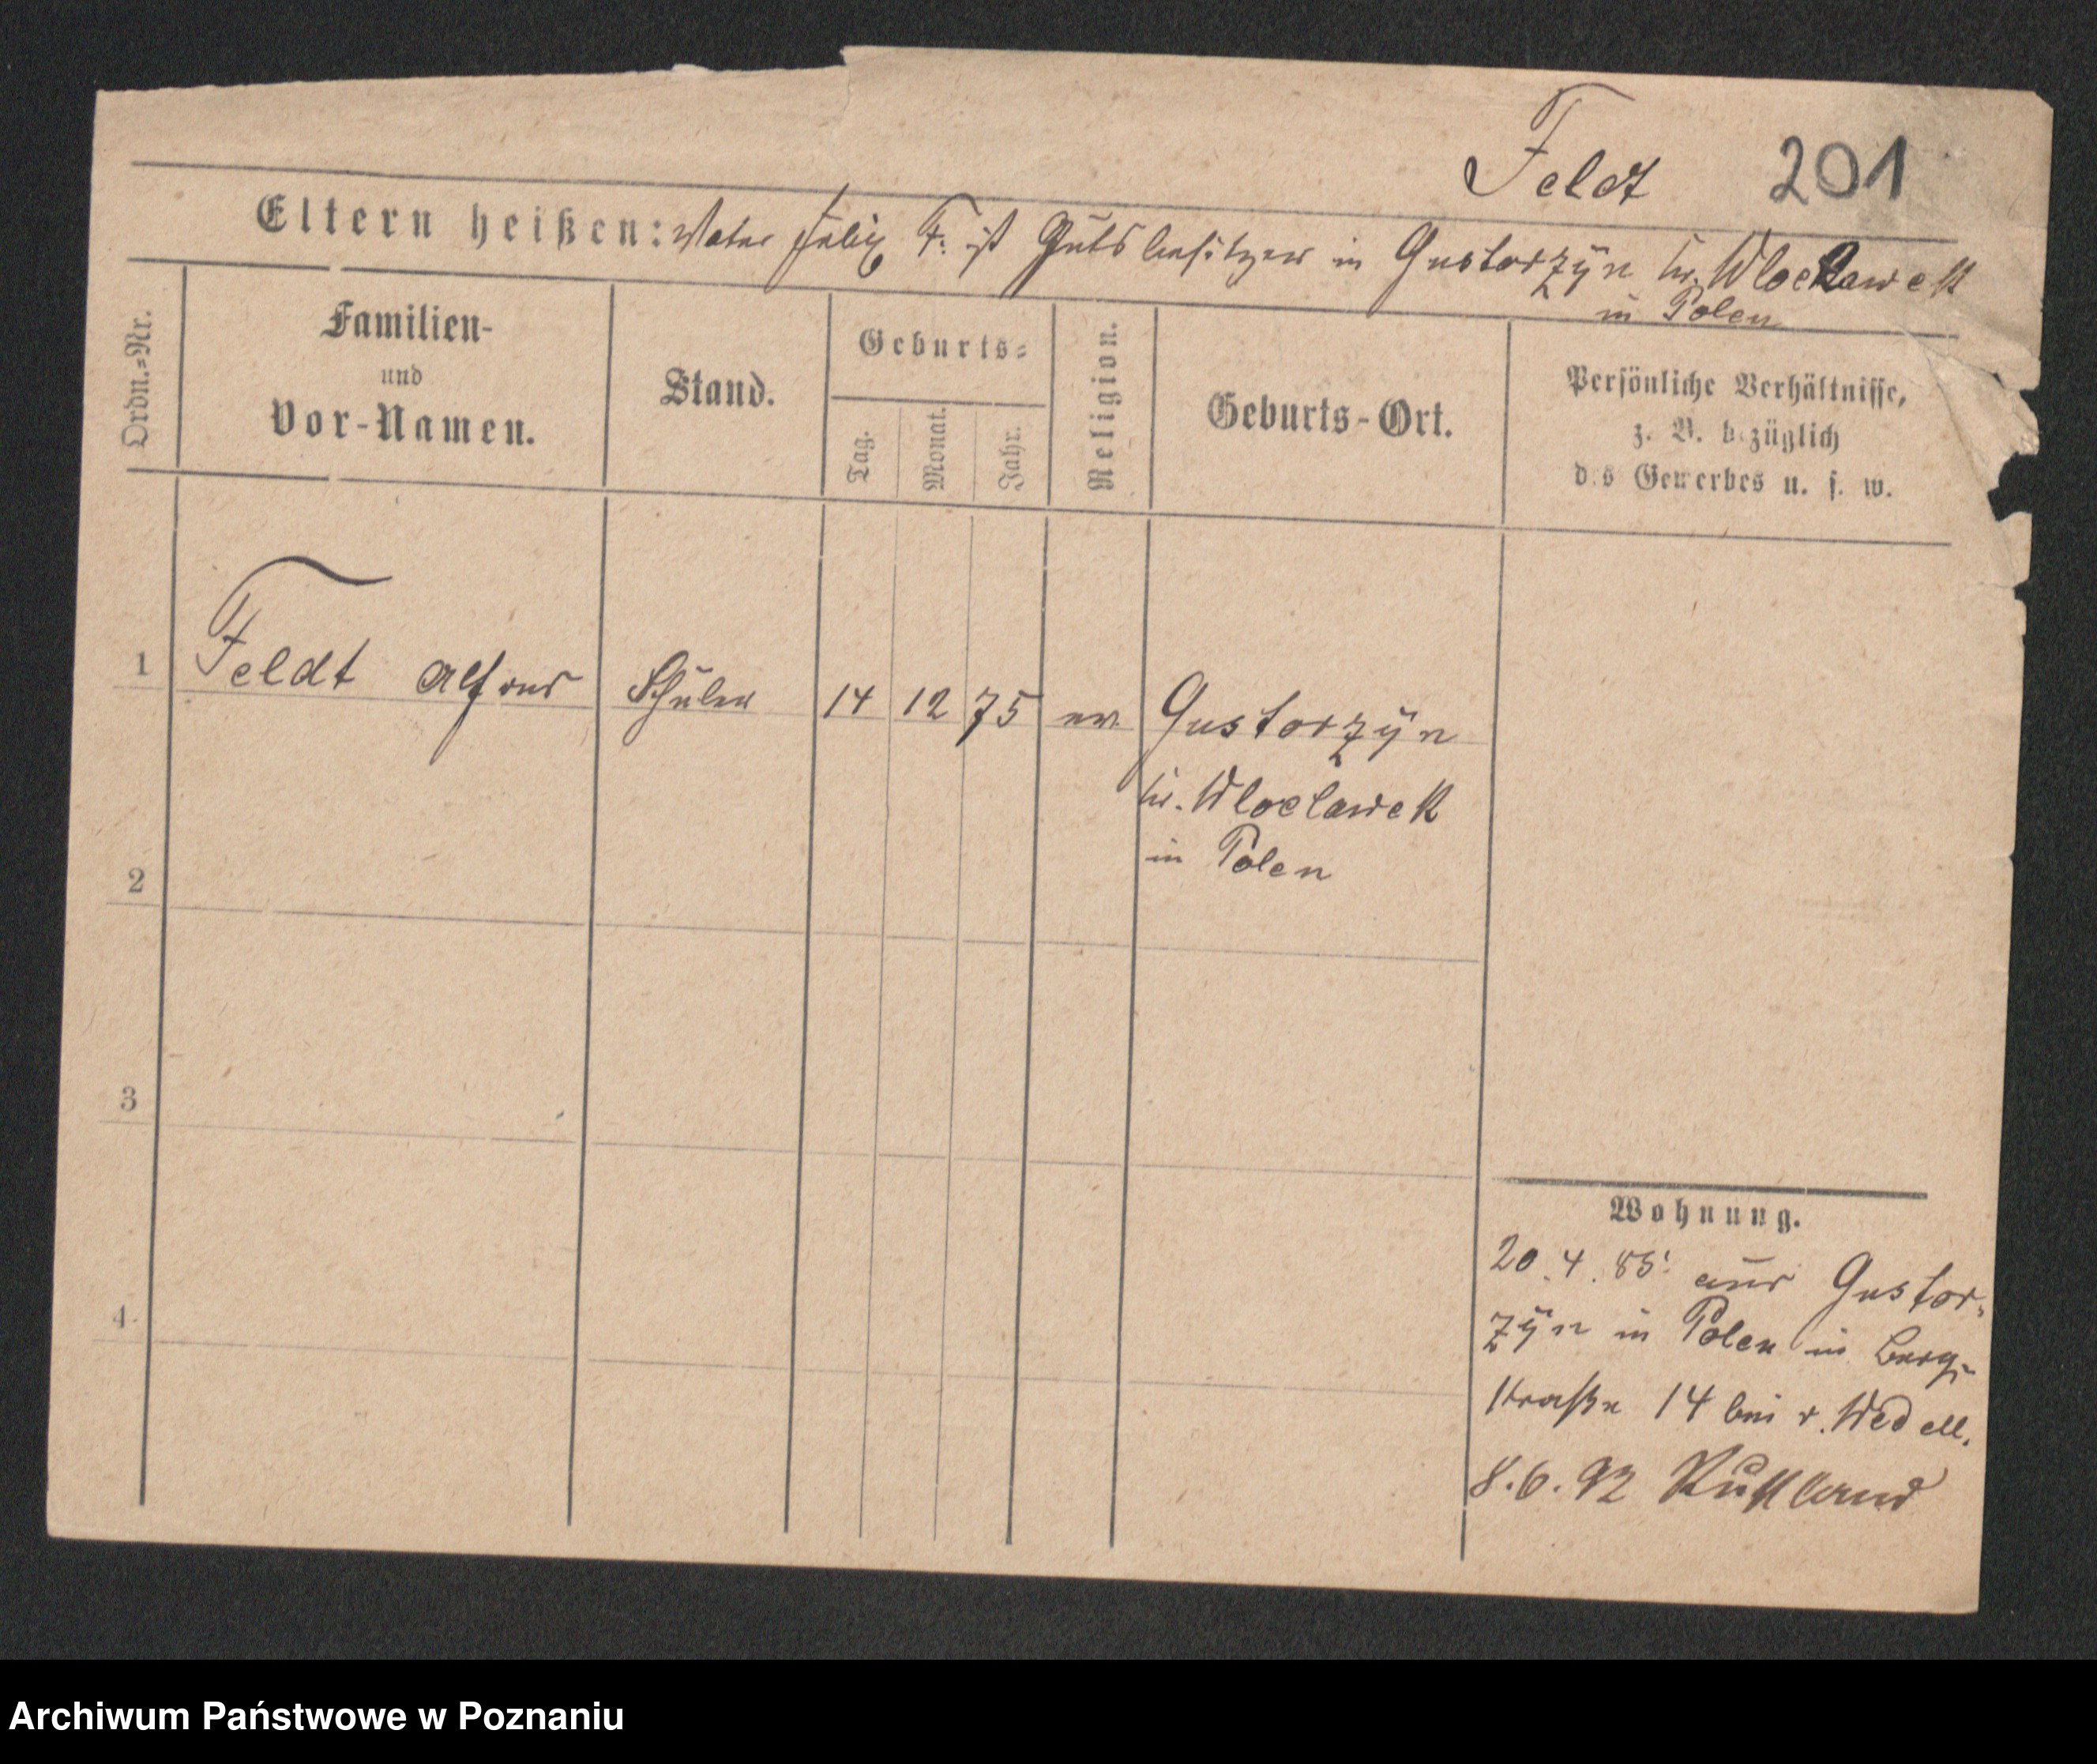 Feldt 201
Eltern heißen: Vater Felix F. ist Gutsbesitzer in Gustorzÿn Kr. Wloclawek
in Polen
Ordn.=Nr.
Familien-
und
Vor-Namen.
Stand.
Geburts=
Tag.
Monat.
Jahr.
Religion.
Geburts-Ort.
Persönliche Verhältnisse,
z. B. bezüglich
des Gewerbes u. s. w.
1 Feldt Alfred Schüler 14 12 75 ev. Gustorzÿn
Kr. Wloclawek
in Polen
2
3
4
Wohnung.
20.4.85: aus Gustor-
zÿn in Polen in Berg-
straße 14 bei v. Wedell.
8.6.92 Rußland
Archiwum Państwowe w Poznaniu